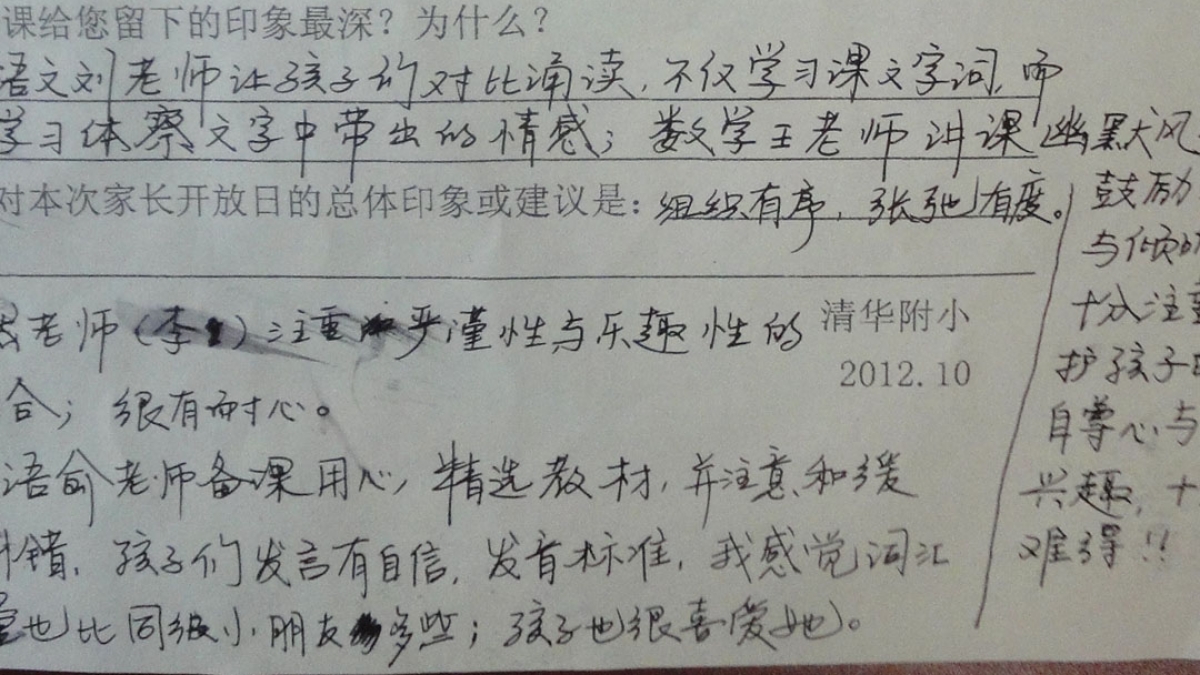 课给您留下的印象最深？为什么？
语文刘老师让孩子们对比诵读，不仅学习课文字词，而
学习体察文字中带出的情感；数学王老师讲课幽默风
对本次家长开放日的总体印象或建议是：组织有序，张弛有度。
鼓励
与倾听
十分注重
护孩子的
自尊心与
兴趣，十
难得！！
老师（李）注重严谨性与乐趣性的
合；很有耐心。
清华附小
2012.10
语俞老师备课用心，精选教材，并注意和缓
纠错，孩子们发言有自信，发音标准，我感觉词汇
量也比同级小朋友多些；孩子也很喜爱她。